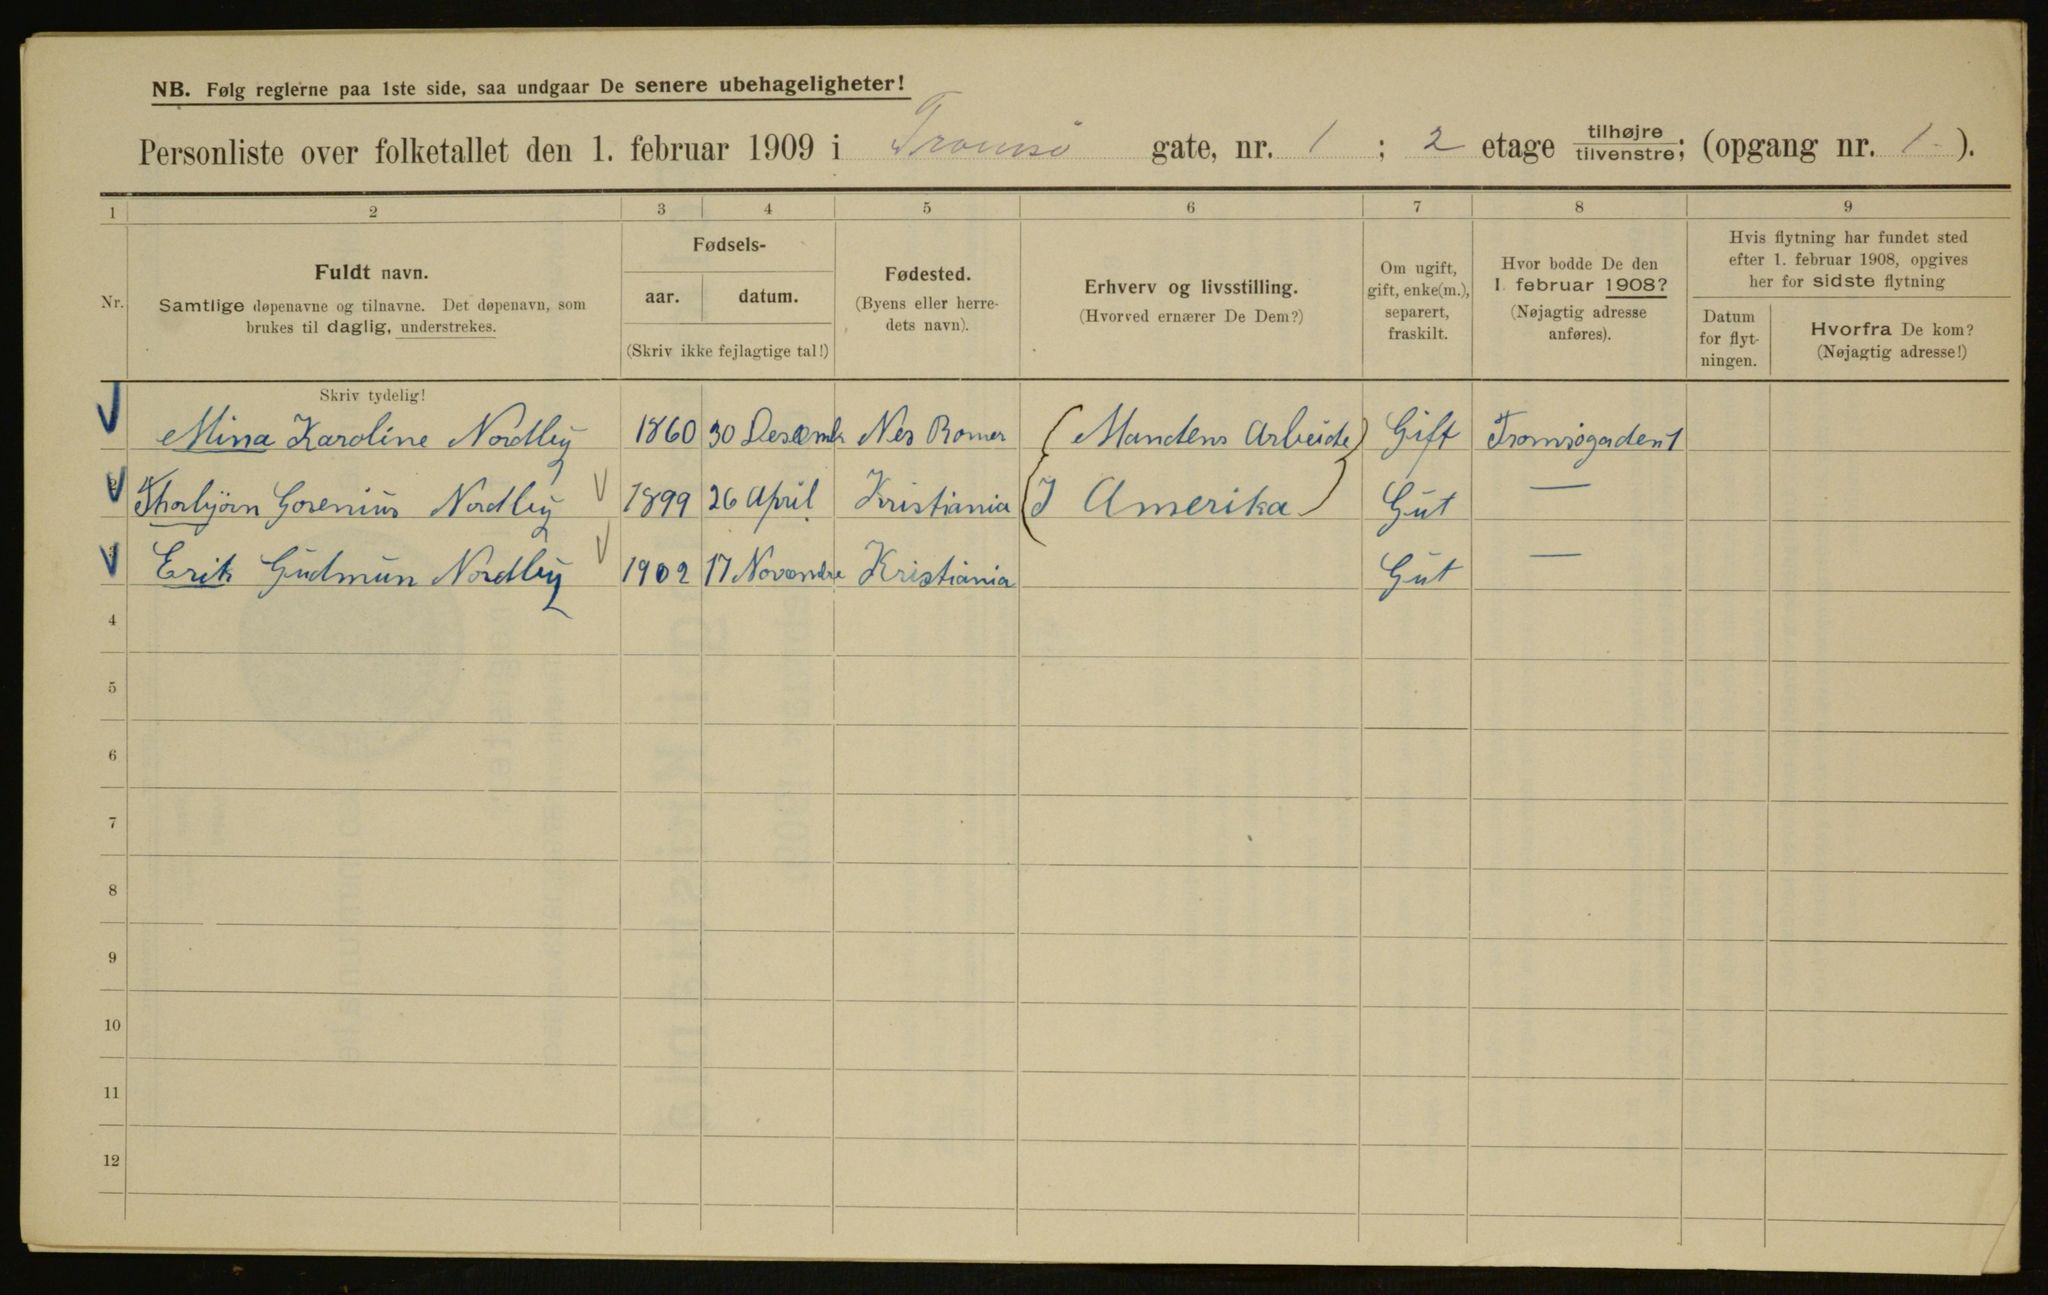 NB. Følg reglerne paa 1ste side, saa undgaar De senere ubehageligheter!
Personliste over folketallet den 1. februar 1909 i Tromsø gate, nr. 1 ; 2 etage tilhøjre/tilvenstre; (opgang nr. 1 ).
1 2 3 4 5 6 7 8 9
Nr.
Fuldt navn.
Samtlige døpenavne og tilnavne. Det døpenavn, som
brukes til daglig, understrekes.
Fødsels-
aar. datum.
(Skriv ikke fejlagtige tal!)
Fødested.
(Byens eller herre-
dets navn).
Erhverv og livsstilling.
(Hvorved ernærer De Dem?)
Om ugift,
gift, enke(m.),
separert,
fraskilt.
Hvor bodde De den
1. februar 1908?
(Nøjagtig adresse
anføres).
Hvis flytning har fundet sted
efter 1. februar 1908, opgives
her for sidste flytning
Datum
for flyt-
ningen.
Hvorfra De kom?
(Nøjagtig adresse!)
Skriv tydelig!
Mina Karoline Nordby 1860 30 Desembr Nes Romer (Mandens Arbeide) Gift Tromsøgaden 1
2 Thorbjörn Gorenius Nordby 1899 26 April Kristiania (I Amerika) Gut —
3 Erik Gudmun Nordby 1902 17 Novembre Kristiania Gut —
4
5
6
7
8
9
10
11
12